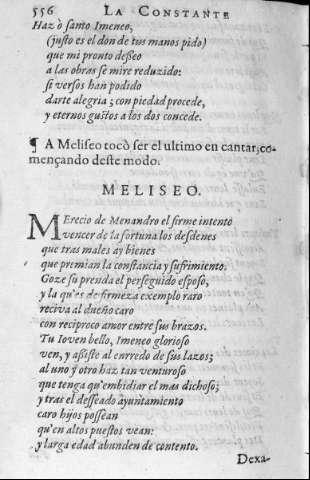 556 LA CONSTANTE
Haz ò santo Imeneo,
(justo es el don de tus manos pido)
que mi pronto desseo
a las obras se mire reduzido:
si versos han podido
darte alegria; con piedad procede,
y eternos gustos a los dos concede.
¶ A Meliseo tocò ser el ultimo en cantar, co-
mençando deste modo.
MELISEO.
MErecio de Menandro el firme intento
vencer de la fortuna los desdenes
que tras males ay bienes
que premian la constancia y sufrimiento.
Goze su prenda el perseguido esposo,
y la qu'es de firmeza exemplo raro
reciva al dueño caro
con reciproco amor entre sus brazos.
Tu Ioven bello, Imeneo glorioso
ven, y assiste al enrredo de sus lazos;
al uno y otro haz tan venturoso
que tenga qu'embidiar el mas dichoso;
y tras el desseado ayuntamiento
caro hijos possean
qu'en altos puestos vean:
y larga edad abunden de contento.
Dexa-